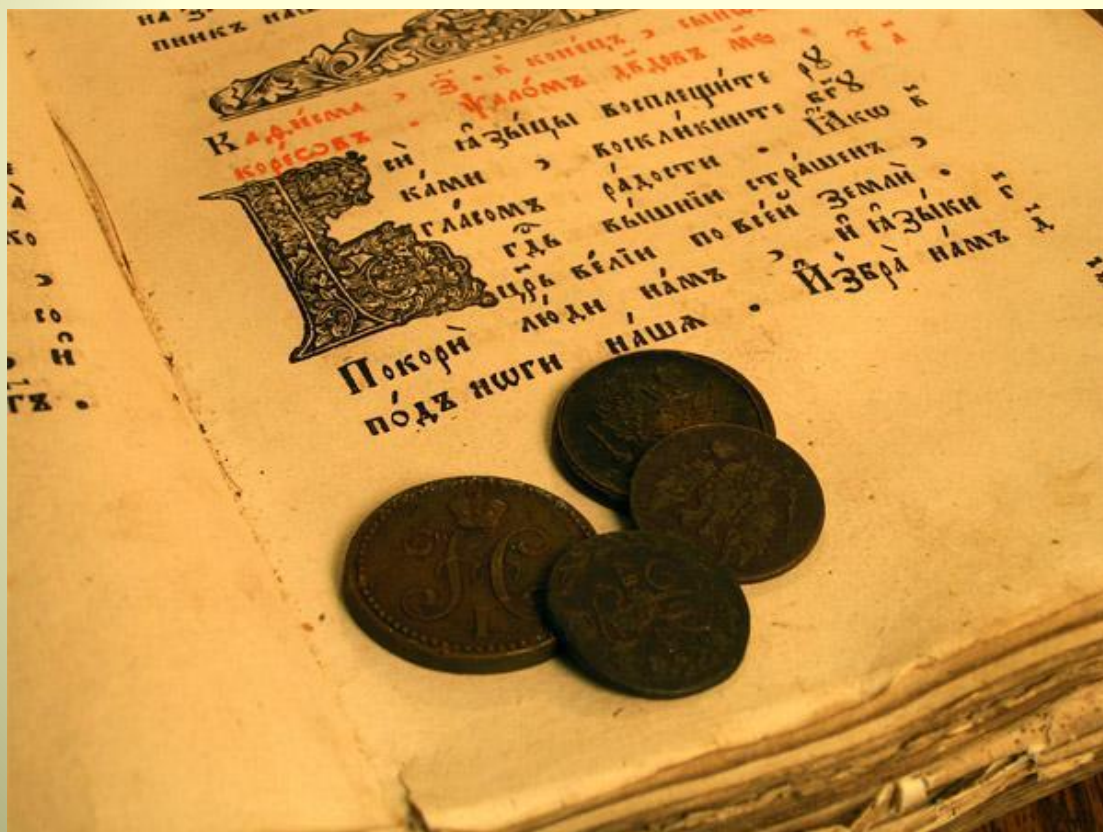 Каѳи́сма , з҃ . в̾ коне́цъ , сыно́въ
коре́ѡвъ . ѱало́мъ дв҃довъ м҃ѕ .
Всѝ ꙗ҆зы́цы восплещи́те рꙋ
ка́ми , воскли́кните бг҃ꙋ
гла́сомъ ра́дости . Ꙗ҆́кѡ в҃
гд҇ь вы́шнїи стра́шенъ ,
цр҃ь ве́лїи по все́й землѝ .
Покорѝ лю́ди на́мъ , и҆ ꙗ҆зы́ки г҃
по́дъ нѡги на́шѧ . И҆збра̀ на́мъ д҃